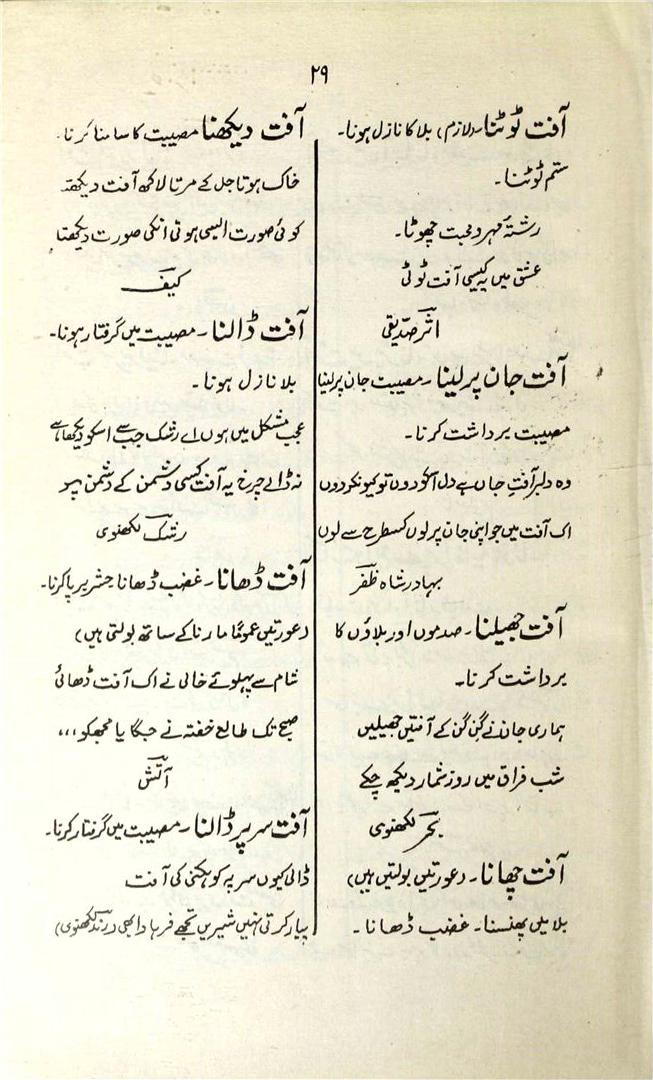 ۲۹
آفت ٹوٹنا۔ (لازم) بلا کا نازل ہونا۔
ستم ٹوٹنا۔
رشتۂ مہر و محبت چھوٹا۔
عشق میں یہ کیسی آفت ٹوٹی
اثر صدیقی
آفت جان پر لینا۔ مصیبت جان پر لینا
مصیبت برداشت کرنا۔
وہ دلبر آفتِ جاں ہے دل اسکو دوں تو کیونکر دوں
اک آفت میں جو اپنی جان پر لوں کسطرح سے لوں
بہادر شاہ ظفر
آفت جھیلنا۔ صدموں اور بلاؤں کا
برداشت کرنا۔
ہماری جان نے گن گن کے آفتیں جھیلیں
شب فراق میں روز شمار دیکھ چکے
بحر لکھنوی
آفت چھانا۔ (عورتیں بولتیں ہیں)
بلا میں پھنسنا۔ غضب ڈھانا۔
آفت دیکھنا مصیبت کا سامنا کرنا۔
خاک ہوتا جل کے مرتا لاکھ آفت دیکھتا
کوئی صورت ایسی ہوتی انکی صورت دیکھتا
کیف
آفت ڈالنا۔ مصیبت میں گرفتار ہونا۔
بلا نازل ہونا۔
عجب مشکل میں ہوں اے رشک جب سے اسکو دیکھا ہے
نہ ڈالے چرخ یہ آفت کسی دشمن کے دشمن پر
رشک لکھنوی
آفت ڈھانا۔ غضب ڈھانا حشر برپا کرنا۔
(عورتیں عموماً مارنا کے ساتھ بولتی ہیں)
شام سے پہلوئے خالی نے اک آفت ڈھائی
صبح تک طالع خفتہ نے جگایا مجھکو،،،
آتش
آفت سر پر ڈالنا۔ مصیبت میں گرفتار کرنا۔
ڈالی کیوں سر پہ کوہکنی کی آفت
پیار کرتی نہیں شیریں تجھے فرہاد ابھی (رند لکھنوی)